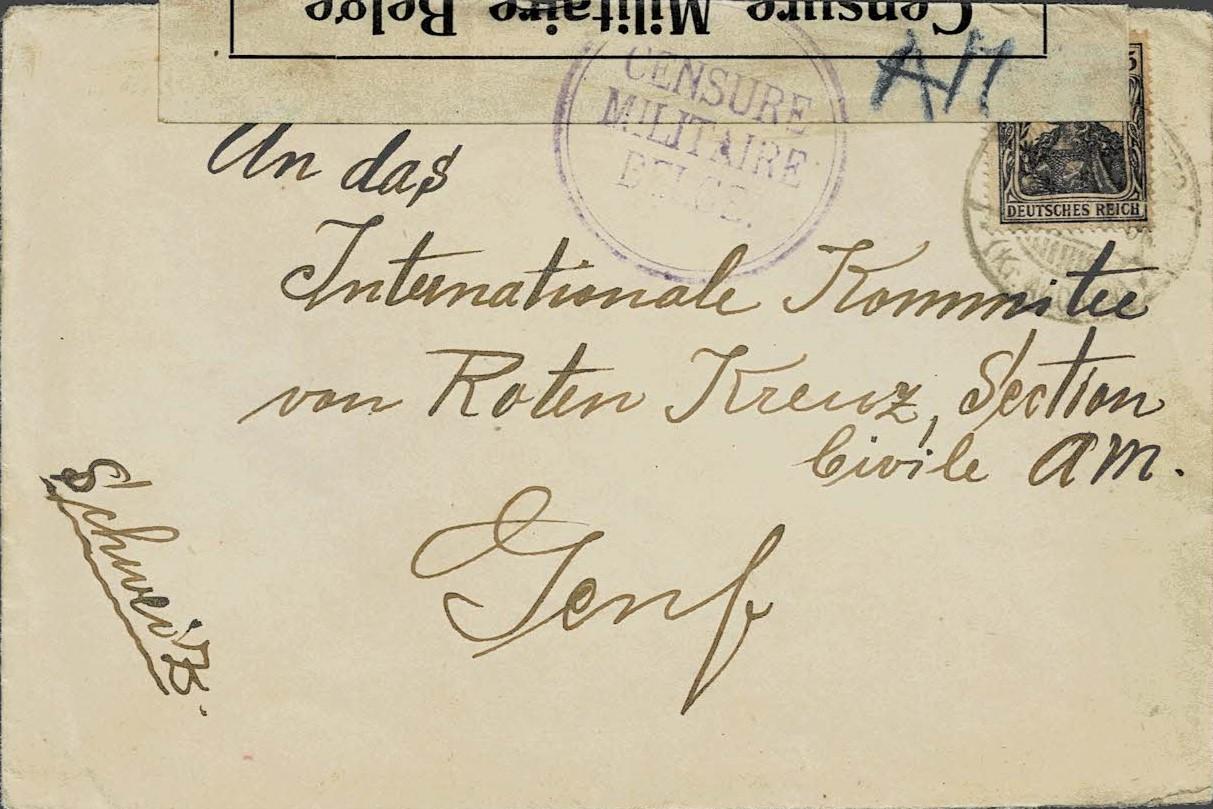 Censure Militaire Belge
CENSURE
MILITAIRE
BELGE.
DEUTSCHES REICH
An das
Internationale Kommitee
von Roten Kreuz, Section
Civile AM.
Genf
Schweiz.